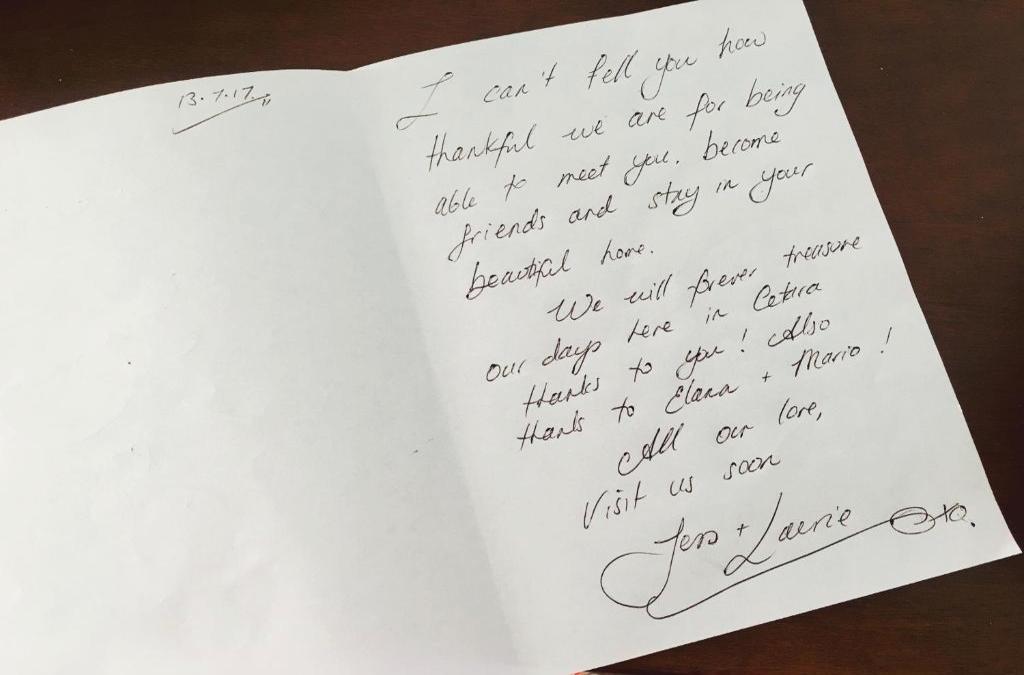 13.7.17
I can't tell you how
thankful we are for being
able to meet you, become
friends and stay in your
beautiful home.
We will forever treasure
our days here in Cetara
thanks to you! Also
thanks to Elana + Mario!
All our love,
Visit us soon
Jess + Laurie